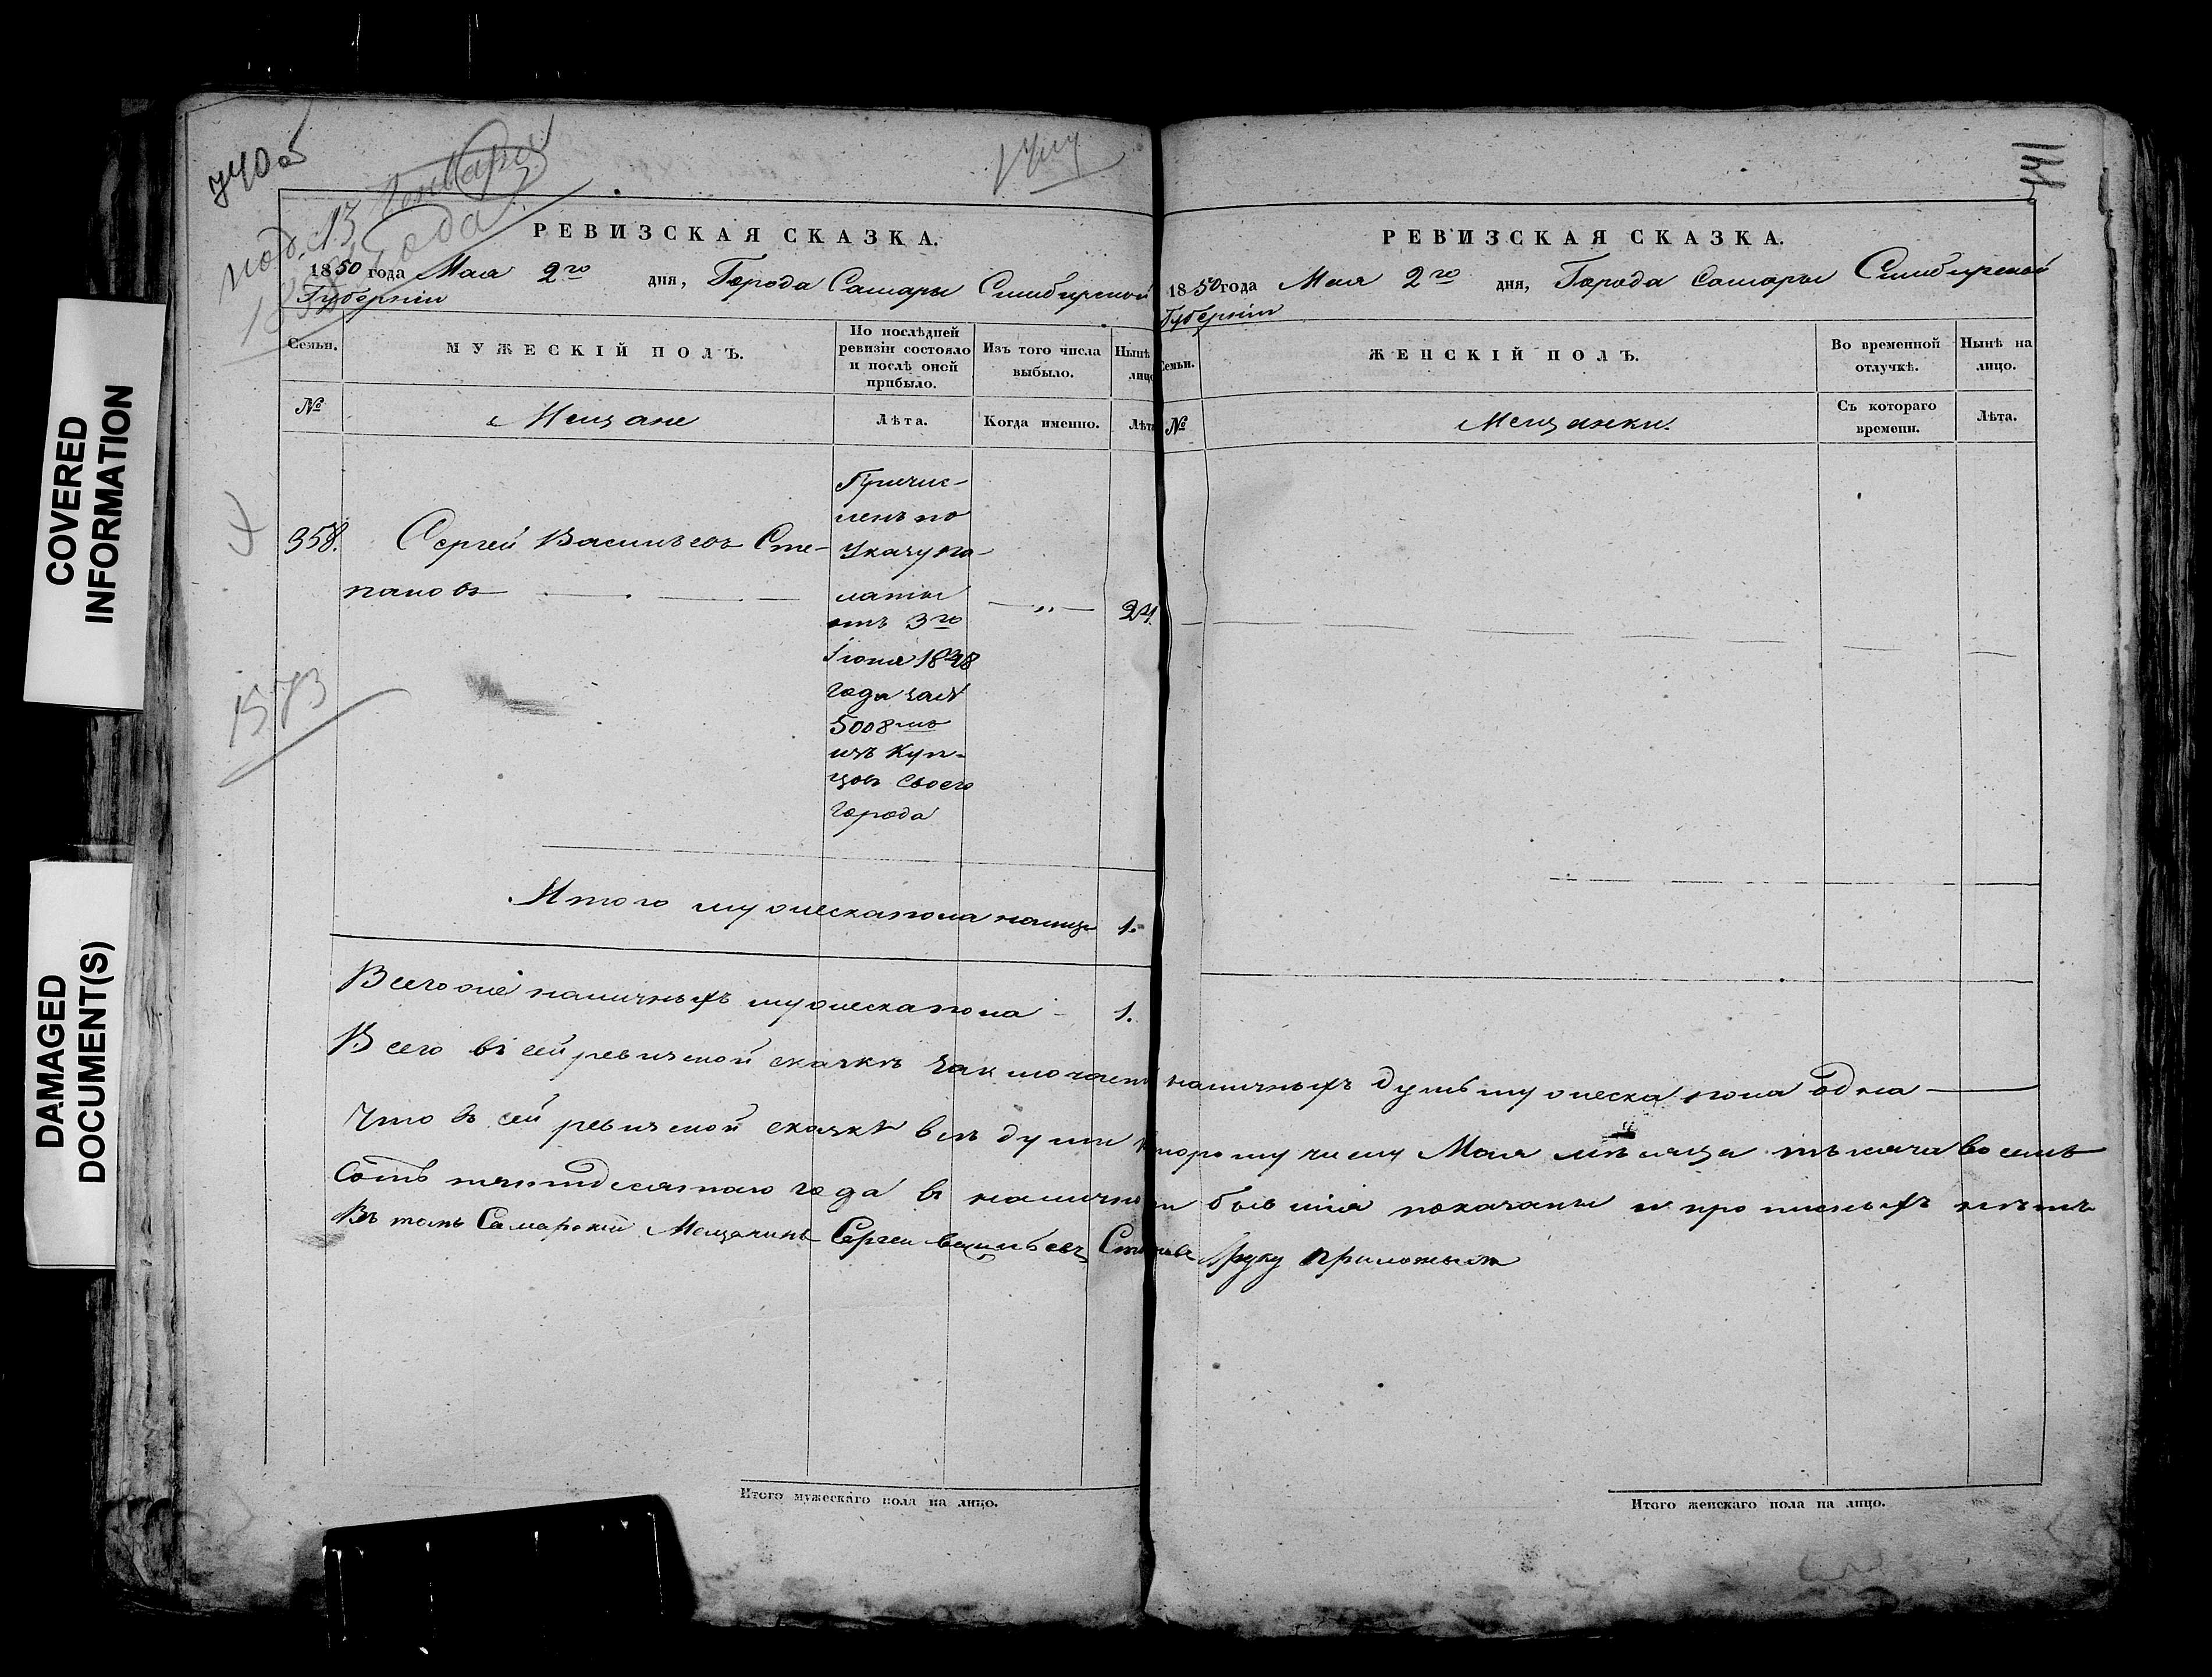 COVERED
INFORMATION
DAMAGED
DOCUMENT(S)
под. 13 Генваря
года
1573
РЕВИЗСКАЯ СКАЗКА.
1850 года Мая 2го дня, Города Самары Симбирской
Губерніи
Семьи.
МУЖЕСКІЙ ПОЛЪ.
По послѣдней
ревизіи состояло
и послѣ оной
прибыло.
Изъ того числа
выбыло.
Нынѣ
лицо
№
Мещане
Лѣта.
Когда именно.
Лѣта
358.
Сергей Васильевъ Сте-
пановъ
Причис-
ленъ по
Указу па-
латы
отъ 3го
Іюня 1848
года за №
5008мъ
изъ Куп-
цовъ своего
города
24.
Итого мужеска пола налицо 1.
Всего же наличныхъ мужеска пола 1.
РЕВИЗСКАЯ СКАЗКА.
1850 года Мая 2го дня, Города Самары Симбирской
Губерніи
Семьи.
ЖЕНСКІЙ ПОЛЪ.
Во временной
отлучкѣ.
Нынѣ на
лицо.
№
Мещанки.
Съ котораго
времени.
Лѣта.
Всего въ сей ревизской сказкѣ заключаетъ наличныхъ душъ мужеска пола одна
Что въ сей ревизской сказкѣ всѣ души второму числу Мая мѣсяца тысяча восемь
сотъ пятидесятаго года въ наличности бывшія показаны и прописныхъ нѣтъ
Въ томъ Самарский Мещанинъ Сергеи васильевъ руку приложилъ
Итого мужескаго пола на лицо.
Итого женскаго пола на лицо.